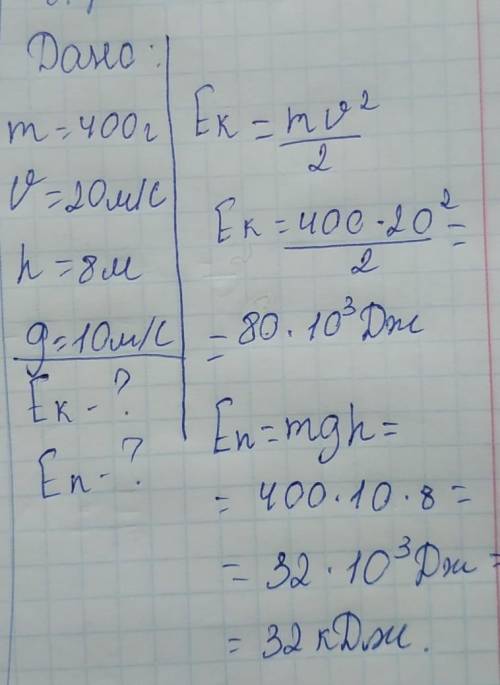 Дано:
m = 400г
v = 20 м/с
h = 8 м
g = 10 м/с
Eк - ?
Eп - ?
Eк = mv²/2
Eк = 400 · 20²/2 =
= 80 · 10³ Дж
Eп = mgh =
= 400 · 10 · 8 =
= 32 · 10³ Дж =
= 32 кДж.